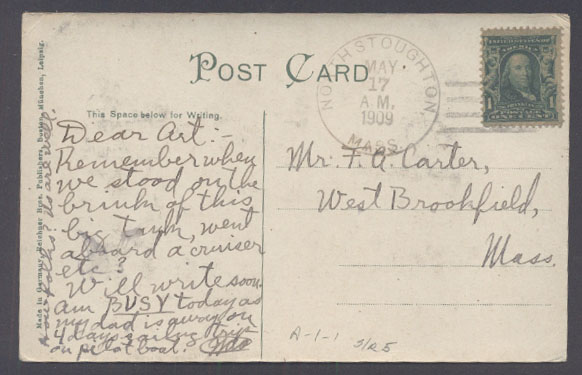 POST CARD
This Space below for Writing.
Dear Art:-
Remember when
we stood on the
brink of this
big tank, went
aboard a cruiser
etc?
Will write soon.
Am BUSY today as
my dad is away on
4 days sailing trip
on pilot boat.
your folks? Us are well.
Made in Germany. Reichner Bros. Publishers, Boston, München, Leipzig.
NORTH STOUGHTON,
MAY
17
A.M.
1909
MASS.
1
Mr. F. A. Carter,
West Brookfield,
Mass.
A-1-1
5/25